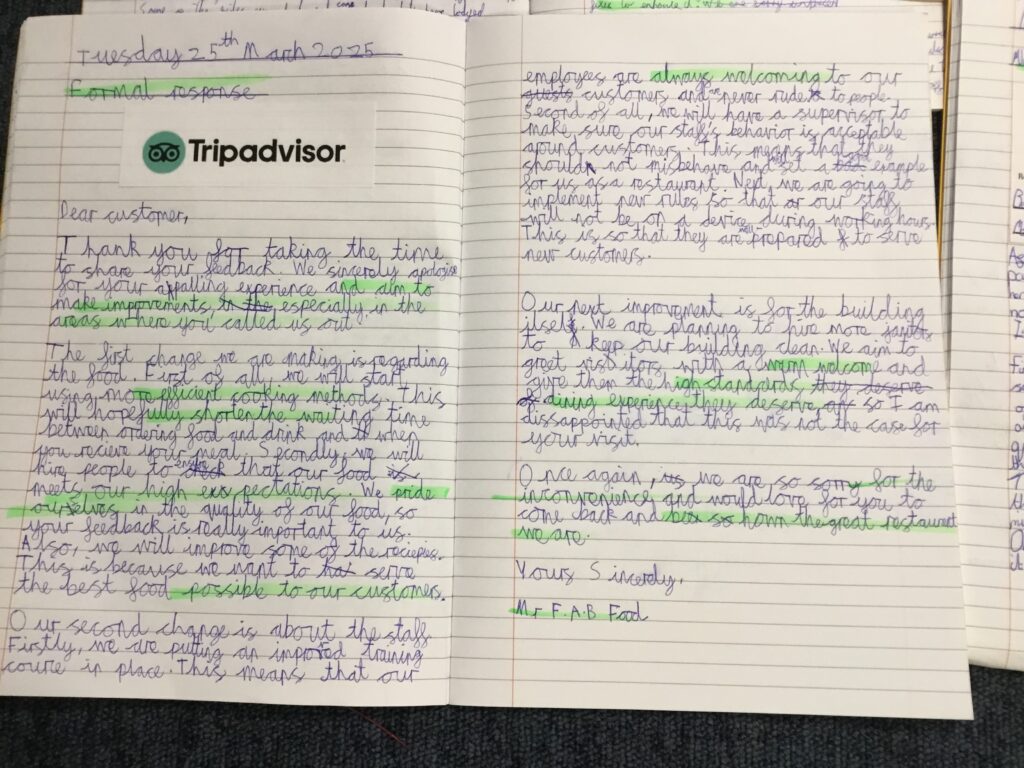 Tuesday 25th March 2025
Formal response
Tripadvisor
Dear customer,
Thank you for taking the time
to share your feedback. We sincerely apologise
for your appalling experience and aim to
make improvements, especially in the
areas where you called us out.
The first change we are making is regarding
the food. First of all, we will start
using more efficient cooking methods. This
will hopefully shorten the waiting time
between ordering food and drink and when
you recieve your meal. Secondly, we will
hire people to ensure that our food
meets our high expectations. We pride
ourselves in the quality of our food, so
your feedback is really important to us.
Also, we will improve some of the reciepies.
This is because we want to serve
the best food possible to our customers.
Our second change is about the staff.
Firstly, we are putting an improved training
course in place. This means that our
employees are always welcoming to our
customers and are never rude to people.
Second of all, we will have a supervisor to
make sure our staff's behavior is acceptable
around customers. This means that they
should not misbehave and set a example
for us as a restaurant. Next, we are going to
implement new rules so that our staff
will not be on a device during working hours.
This is so that they are well prepared to serve
new customers.
Our next improvement is for the building
itself. We are planning to hire more janitors
to keep our building clean. We aim to
greet visitors with a warm welcome and
give them the high standards
dining experience they deserve so I am
dissapointed that this was not the case for
your visit.
Once again, we are so sorry for the
inconvenience and would love for you to
come back and so hown the great restaurant
we are.
Yours Sincerely,
Mr F.A.B Food